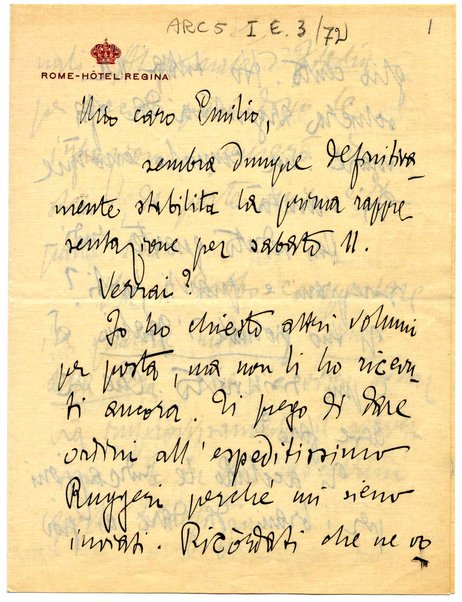 ARC 5 I E. 3/72
1
ROME-HÔTEL REGINA
Mio caro Emilio,
sembra dunque definitiva-
mente stabilita la prima rappre
sentazione per sabato 11.
Verrai?
Io ho chiesto altri volumi
per posta, ma non li ho ricevu-
ti ancora. Ti prego di dare
ordini all'espeditissimo
Ruggeri perché mi sieno
inviati. Ricòrdati che ne vo